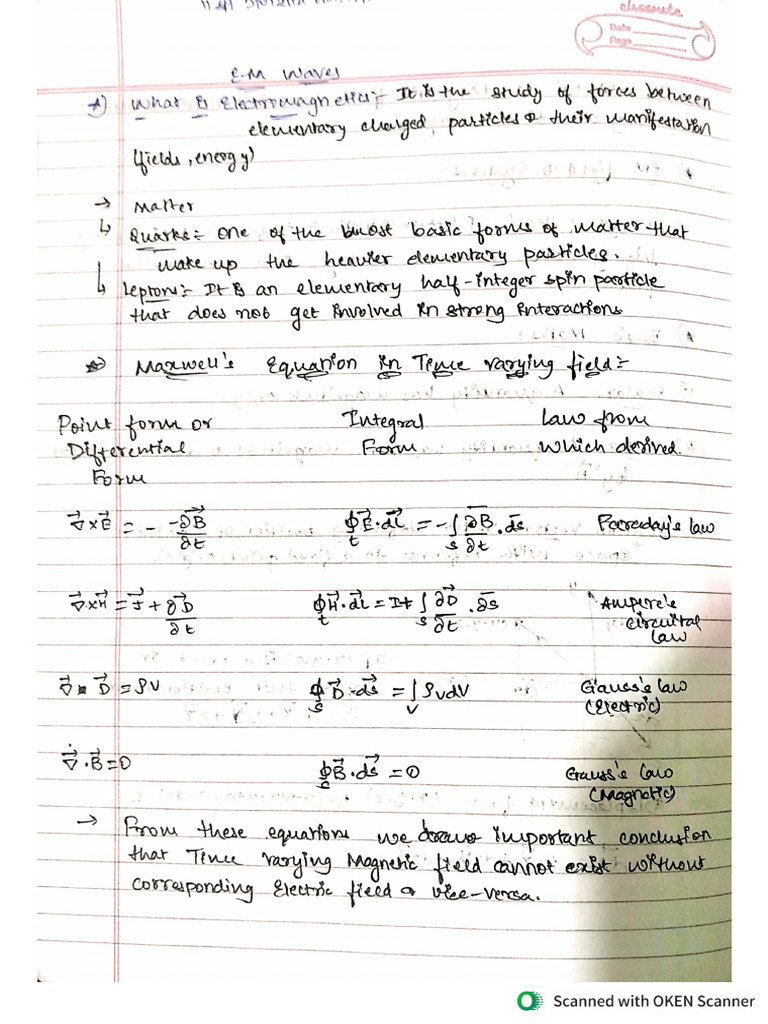 classmate
Date
Page
E.M Waves
What is Electromagnetics:- It is the study of forces between
elementary charged particles & their manifestation
(fields, energy)
→ Matter
↳ Quarks:- one of the most basic forms of matter that
make up the heavier elementary particles.
↳ Leptons:- It is an elementary half-integer spin particle
that does not get involved in strong interactions
Maxwell's Equation in Time varying field:-
Point form or Integral Law from
Differential Form which derived.
Form
∇×E = - -∂B/∂t ∮E·dl = -∫s ∂B/∂t · ds Faraday's law
∇×H = J + ∂D/∂t ∮H·dl = I+∫s ∂D/∂t · ds Ampere's
circuital
law
∇· D = ρv ∮s D·ds = ∫v ρv dv Gauss's law
(Electric)
∇·B = 0 ∮s B·ds = 0 Gauss's law
(Magnetic)
→ From these equations we draw important conclusion
that Time varying Magnetic field cannot exist without
corresponding Electric field & vice-versa.
Scanned with OKEN Scanner